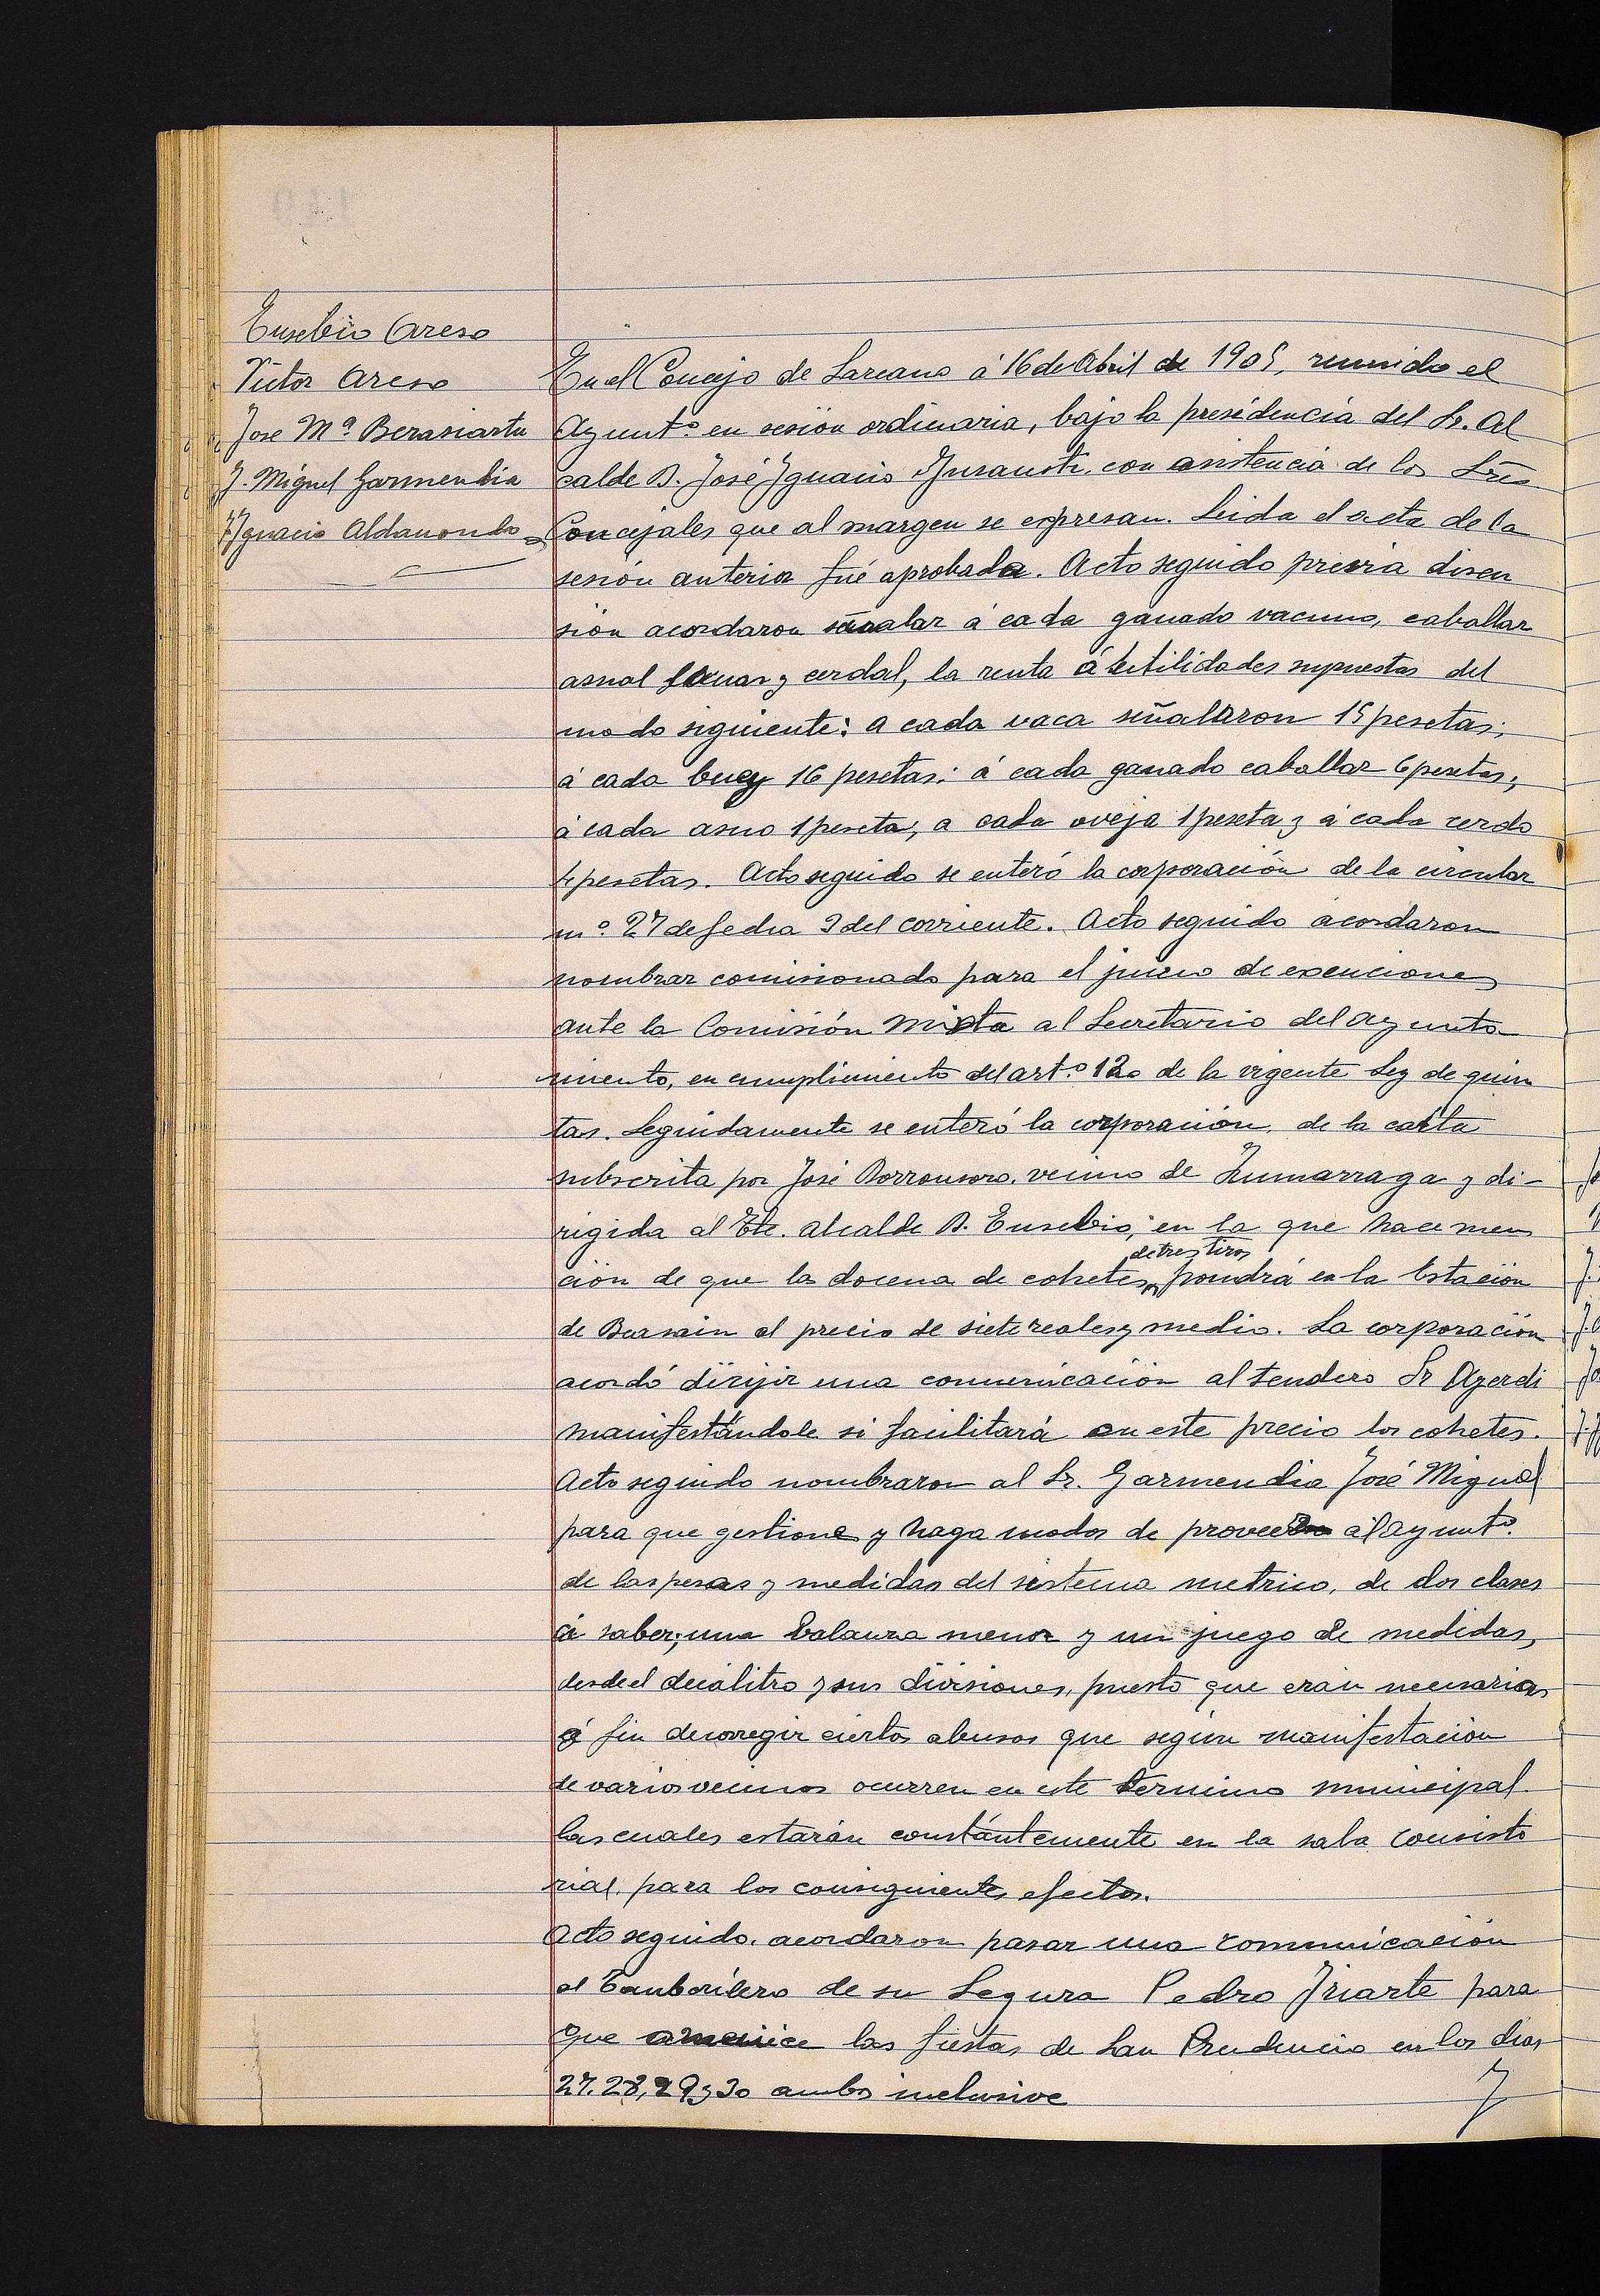 Eusebio Areso
Victor Areso
Jose Mª Berasiartu
J. Miguel Garmendia
J. Ygnacio Aldanondo
En el Concejo de Larcano á 16 de Abril de 1905, reunido el
Ayuntº en sesión ordinaria, bajo la presidencia del Sr. Al
calde D. José Ygnacio con asistencia de los Sres
Concejales que al margen se expresan. Leida el acta de la
sesión anterior fué aprobada. Acto seguido previa discu
sión acordaron señalar á cada ganado vacuno, caballar
asnal lanar y cerdal, la renta á utilidades supuestas del
modo siguiente: a cada vaca señalaron 15 pesetas;
á cada buey 16 pesetas; á cada ganado caballar 6 pesetas;
á cada asno 1 peseta; a cada oveja 1 peseta y á cada cerdo
4 pesetas. Acto seguido se enteró la corporación de la circular
nº 27 de fecha 9 del corriente. Acto seguido acordaron
nombrar comisionado para el juicio de exenciones
ante la Comisión Mixta al Secretario del Ayunta
miento, en cumplimiento del artº 120 de la vigente Ley de quin
tas. Seguidamente se enteró la corporación de la carta
subscrita por José Borronsoro, vecino de Zumarraga y di-
rigida al Tte. alcalde D. Eusebio, en la que hace men
de tres tiros
ción de que la docena de cohetes pondrá en la Estación
de Beasain al precio de siete reales y medio. La corporación
acordó dirijir una comunicación al tendero Sr Ayerdi
manifestándole si facilitará en este precio los cohetes.
Acto seguido nombraron al Sr. Garmendia José Miguel
para que gestione y haga modos de proveer al ayuntº
de las pesas y medidas del sistema metrico, de dos clases
á saber; una balanza menor y un juego de medidas,
desde el decálitro y sus divisiones, puesto que erán necesarias
á fin de corregir ciertos abusos que según manifestación
de varios vecinos ocurren en este termino municipal.
las cuales estarán constántemente en la sala consisto
rial, para los consiguientes efectos.
Acto seguido, acordaron pasar una comunicación
al tamborilero de su Segura Pedro Yriarte para
que amenice las fiestas de San Prudencio en los dias
27, 28, 29 y 30 ambos inclusive